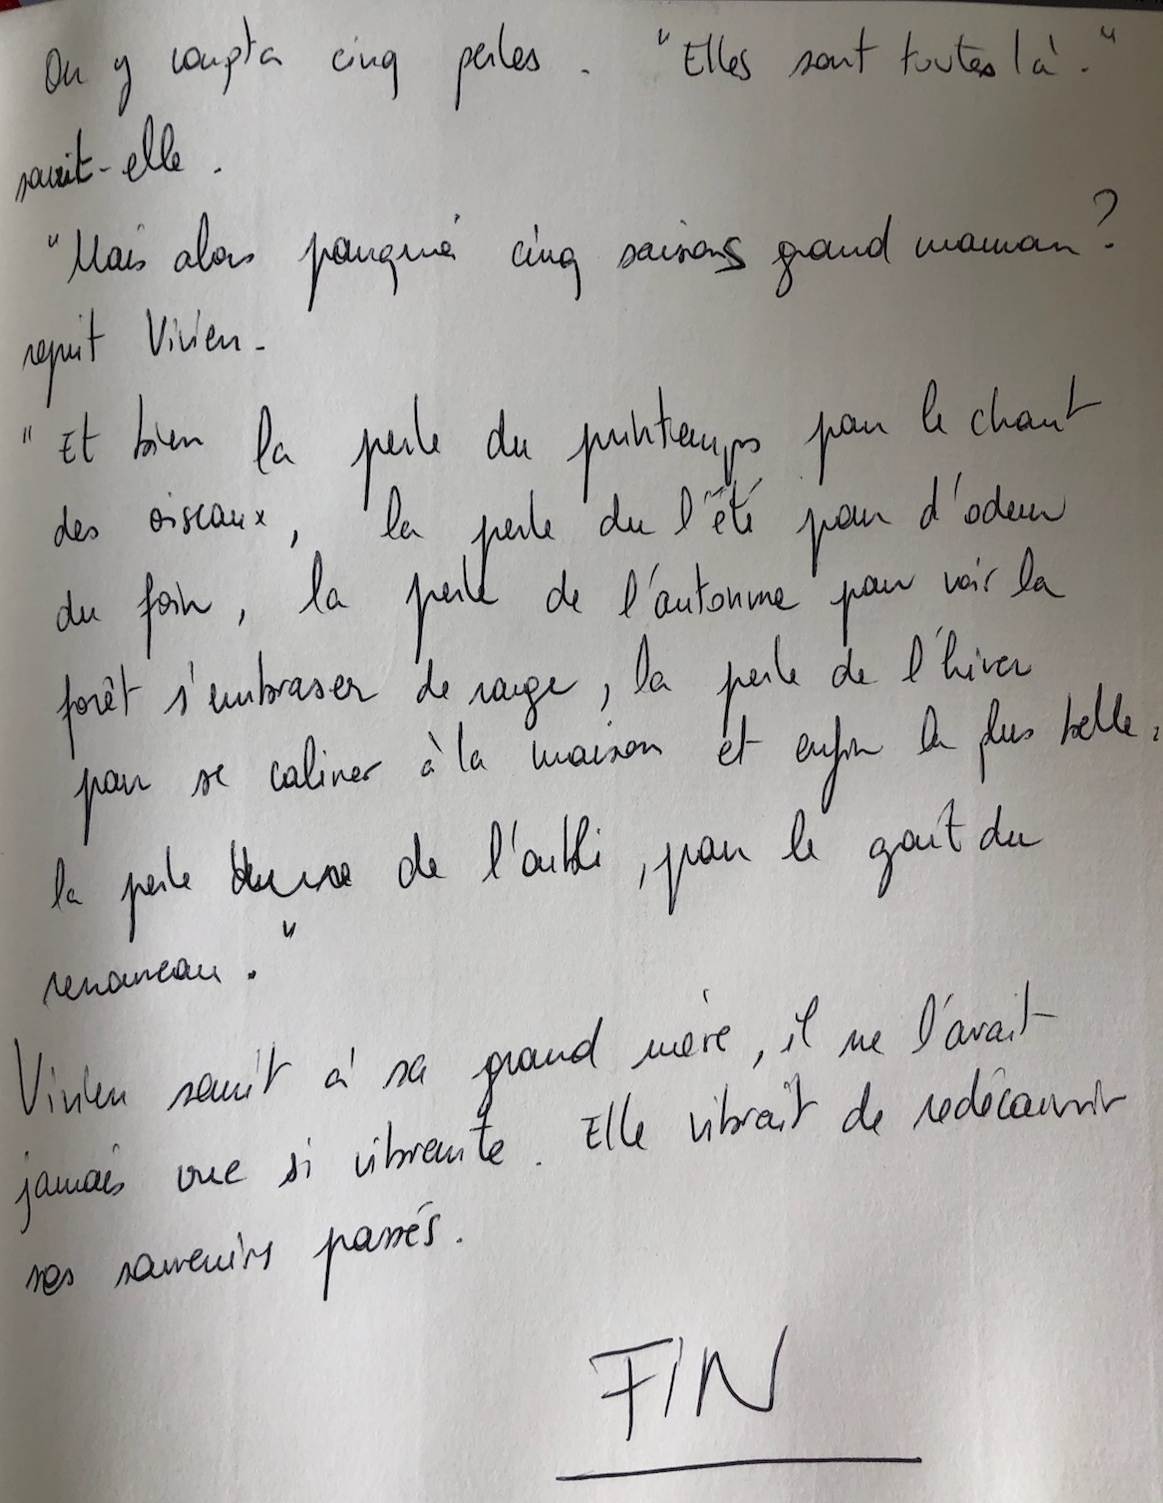 On y compta cinq perles. "Elles sont toutes là."
sourit-elle.
"Mais alors pourquoi cinq saisons grand maman?
reprit Vivien.
"Et bien la perle du printemps pour le chant
des oiseaux, la perle du l'été pour d'odeur
du foin, la perle de l'automne pour voir la
forêt s'embraser de rouge, la perle de l'hiver
pour se caliner à la maison et enfin la plus belle,
la perle de l'oubli, pour le goût du
renouveau."
Vivien sourit à sa grand mère, il ne l'avait
jamais vue si vibrante. Elle vibrait de redécouvrir
ses souvenirs passés.
FIN